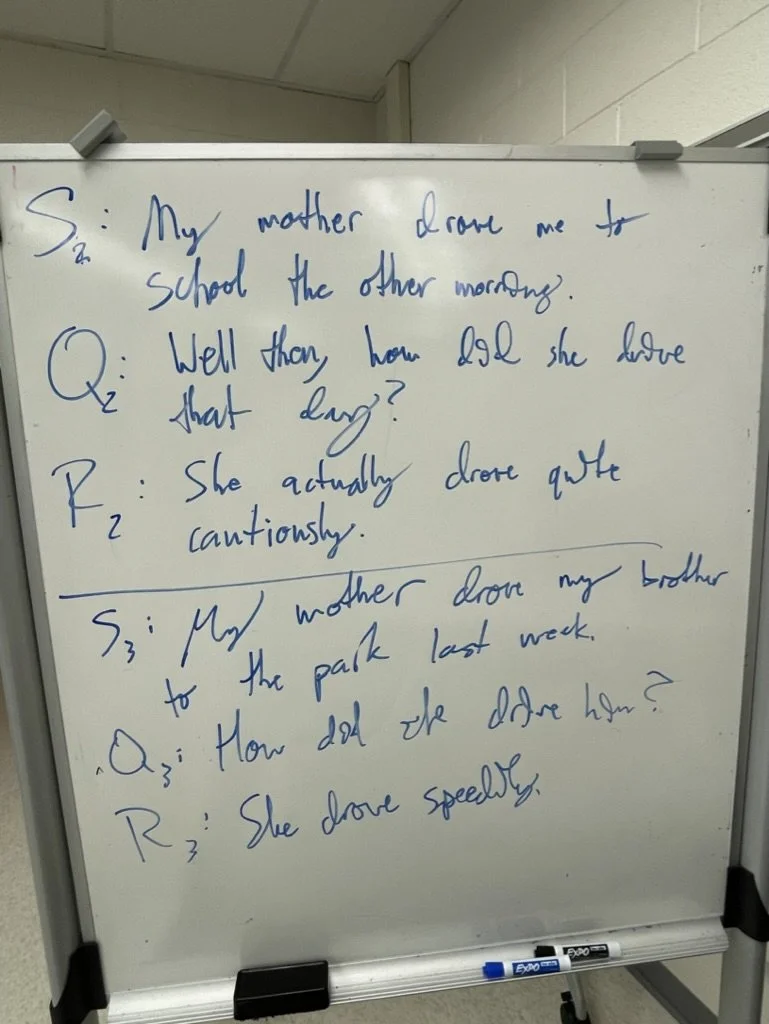 S2: My mother drove me to
school the other morning.
Q2: Well then, how did she drive
that day?
R2: She actually drove quite
cautiously.
S3: My mother drove my brother
to the park last week.
Q3: How did she drive him?
R3: She drove speedily.
EXPO
EXPO